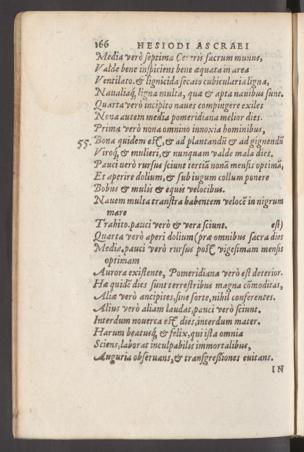 166 HESIODI ASCRAEI
Media verò septima Cereris sacrum munus,
Valde bene inspiciens bene æquata in area
Ventilato. & lignicida secato cubicularia ligna,
Naualiaq́; ligna multa, quæ & apta nauibus sunt.
Quarta verò incipito naues compingere exiles
Nona autem media pomeridiana melior dies.
Prima verò nona omnino innoxia hominibus,
55. Bona quidem est, & ad plantandũ & ad gignendũ
Viroq́; & mulieri, & nunquam valde mala dies.
Pauci verò rursus sciunt tertiã nonã mensis optimã,
Et aperire dolium, & sub iugum collum ponere
Bobus & mulis & equis velocibus.
Nauem multa transtra habentem velocẽ in nigrum
mare
Trahito. pauci verò & vera sciunt. est)
Quarta verò aperi dolium (præ omnibus sacra dies
Media, pauci verò rursus post vigesimam mensis
optimam
Aurora existente, Pomeridiana verò est deterior.
Hæ quidẽ dies sunt terrestribus magna cõmoditas,
Aliæ verò ancipites, sine sorte, nihil conferentes.
Alius verò aliam laudat, pauci verò sciunt.
Interdum nouerca est dies, interdum mater.
Harum beatusq́; & felix, qui ista omnia
Sciens, laborat inculpabilis immortalibus,
Auguria obseruans, & transgressiones euitans.
IN